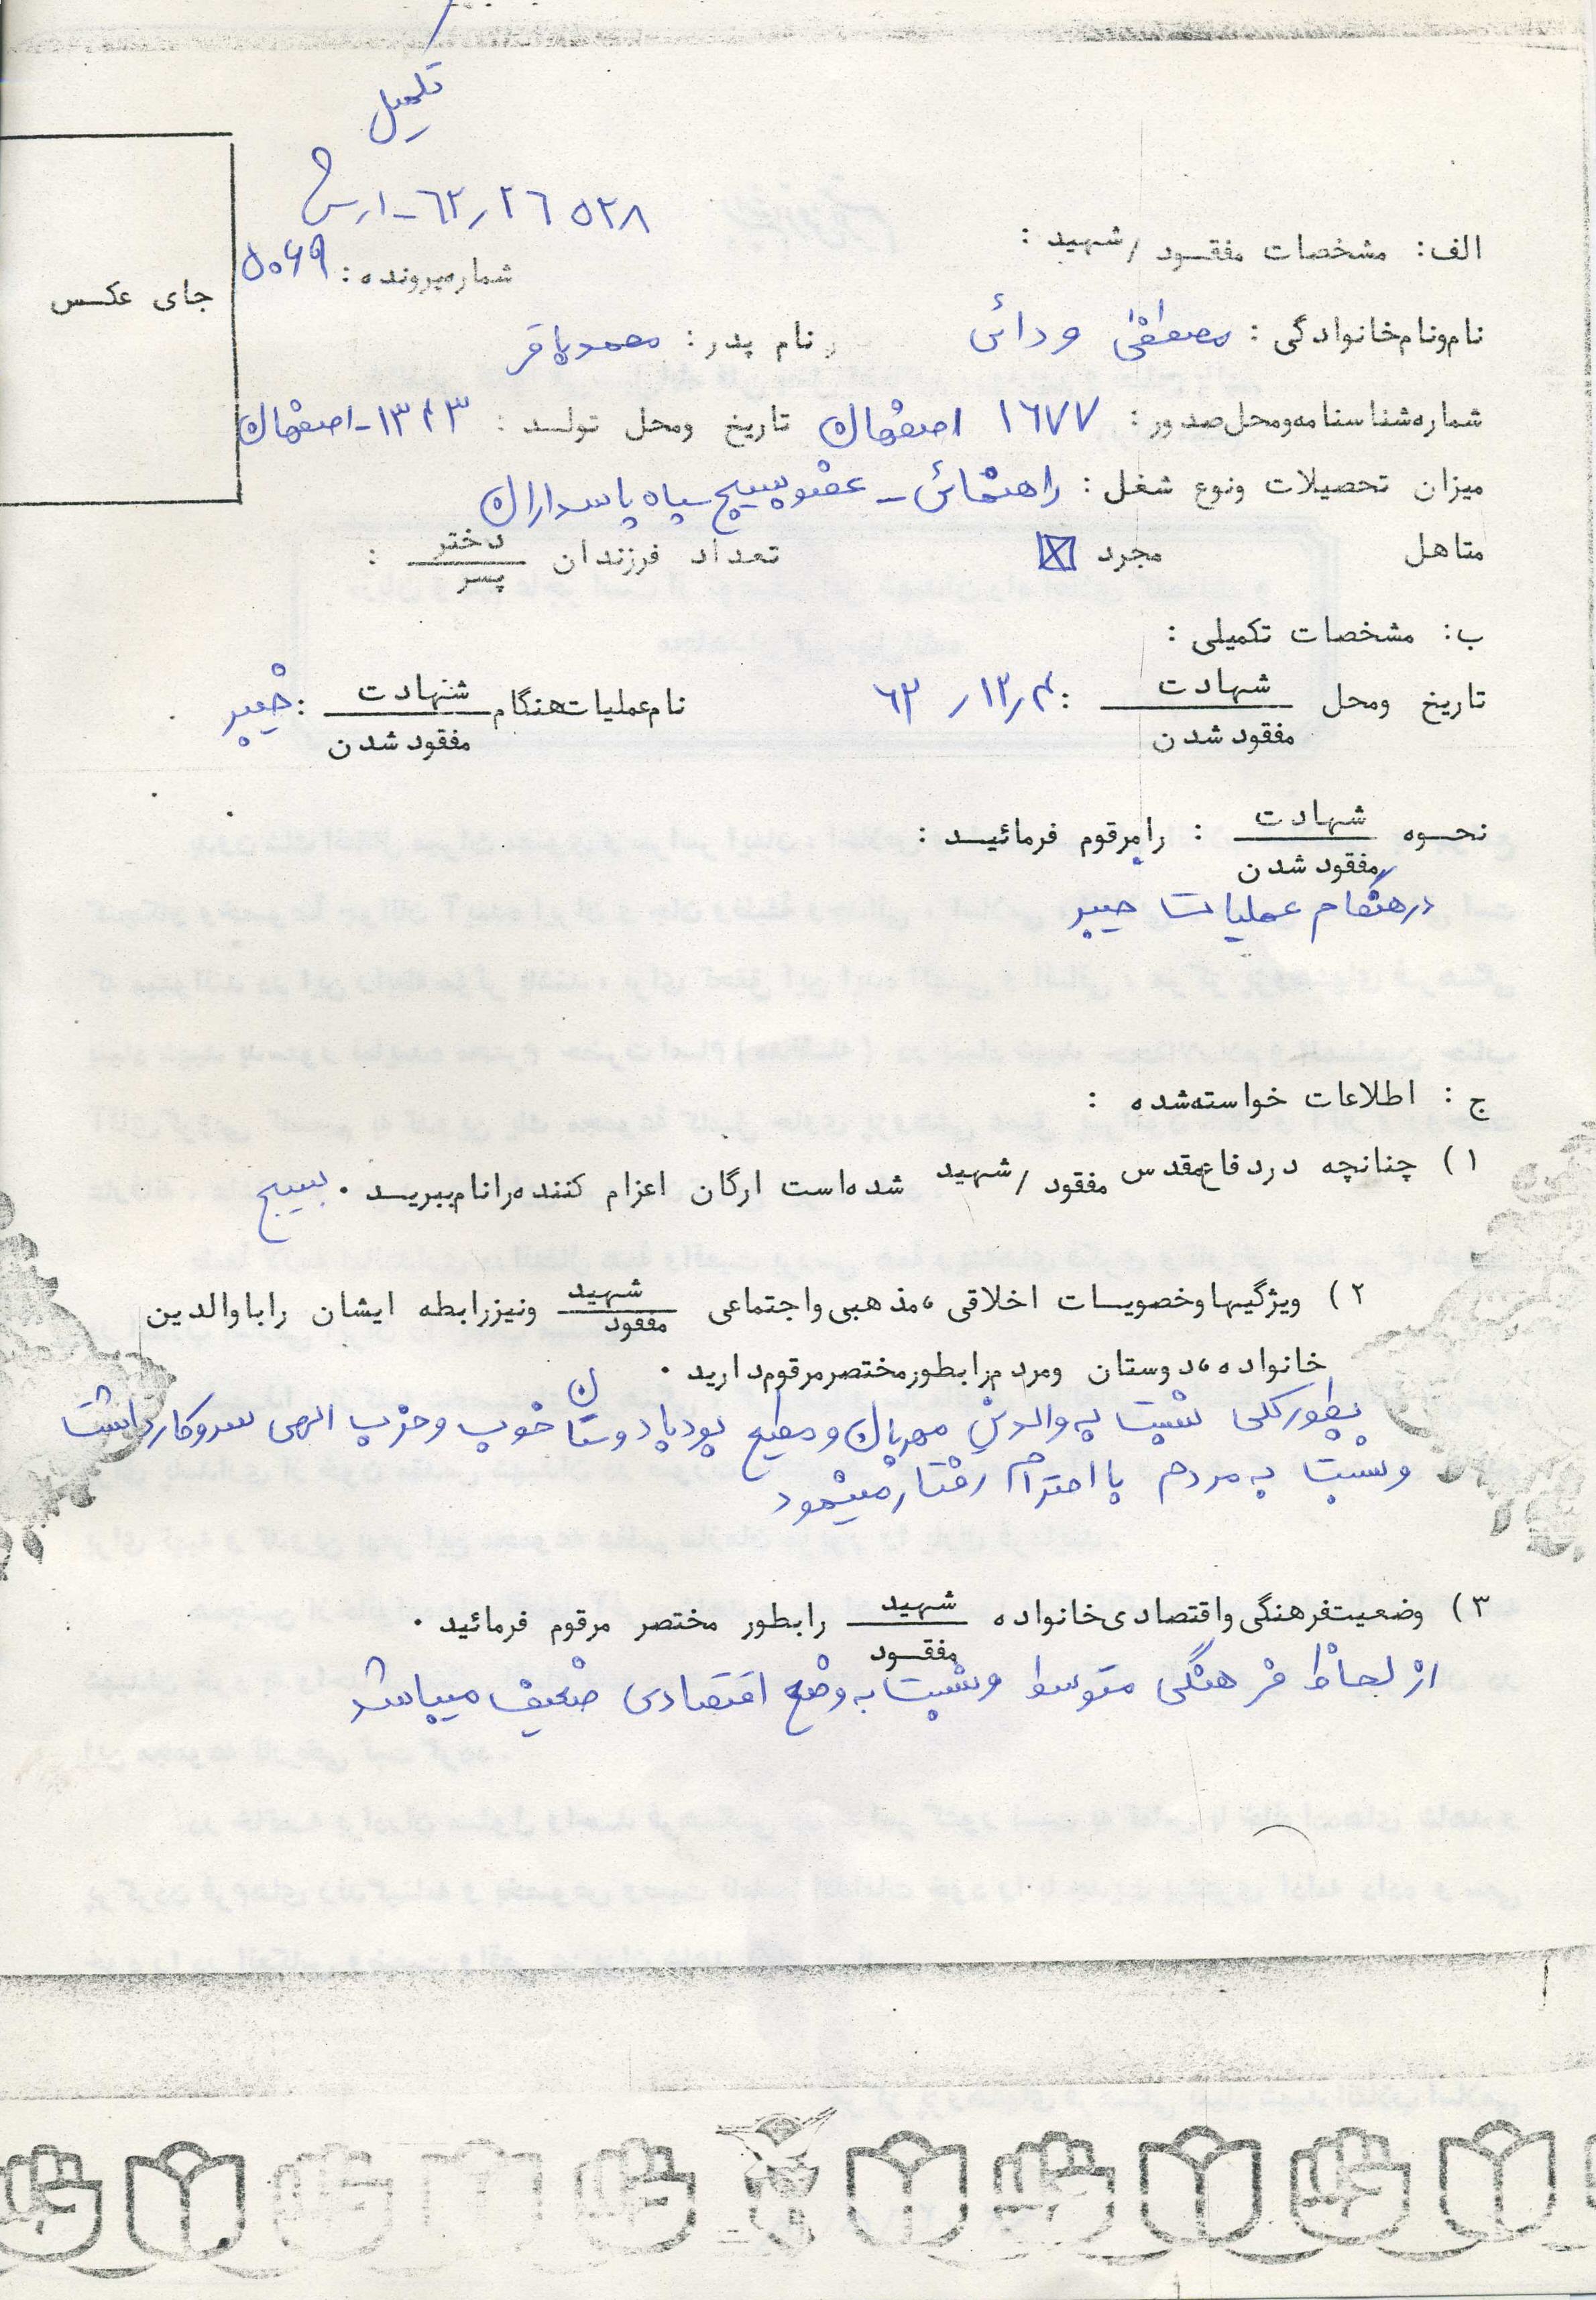 تکمیل
۶۲٫۲۶۵۲۸-ارس
الف: مشخصات مفقود/شهید:
شماره‌پرونده: ۵۰۶۹
جای عکس
نام‌ونام‌خانوادگی: مصطفی ودائی نام پدر: محمدباقر
شماره‌شناسنامه‌ومحل‌صدور: ۱۶۷۷ اصفهان تاریخ ومحل تولد: ۱۳۴۳-اصفهان
میزان تحصیلات ونوع شغل: راهنمائی - عضو بسیج سپاه پاسداران
متاهل مجرد ☒ تعداد فرزندان دختر/پسر:
ب: مشخصات تکمیلی:
تاریخ ومحل شهادت/مفقود شدن: ۶۲٫۱۲٫۴ نام‌عملیات‌هنگام شهادت/مفقود شدن: خیبر
نحوه شهادت/مفقود شدن: رامرقوم فرمائید:
در هنگام عملیات خیبر
ج: اطلاعات خواسته‌شده:
۱) چنانچه دردفاع‌مقدس مفقود/شهید شده‌است ارگان اعزام کننده‌رانام‌ببرید. بسیج
۲) ویژگیهاوخصویسات اخلاقی،مذهبی‌واجتماعی شهید/مفقود ونیزرابطه ایشان راباوالدین
خانواده،دوستان ومردم‌رابطورمختصرمرقوم‌دارید.
بطور کلی نسبت به والدین مهربان و مطیع بود با دوستان خوب و حزب الهی سروکار داشت
و نسبت به مردم با احترام رفتار مینمود
۳) وضعیت‌فرهنگی‌واقتصادی‌خانواده شهید/مفقود رابطور مختصر مرقوم فرمائید.
از لحاظ فرهنگی متوسط و نسبت به وضع اقتصادی ضعیف میباشد